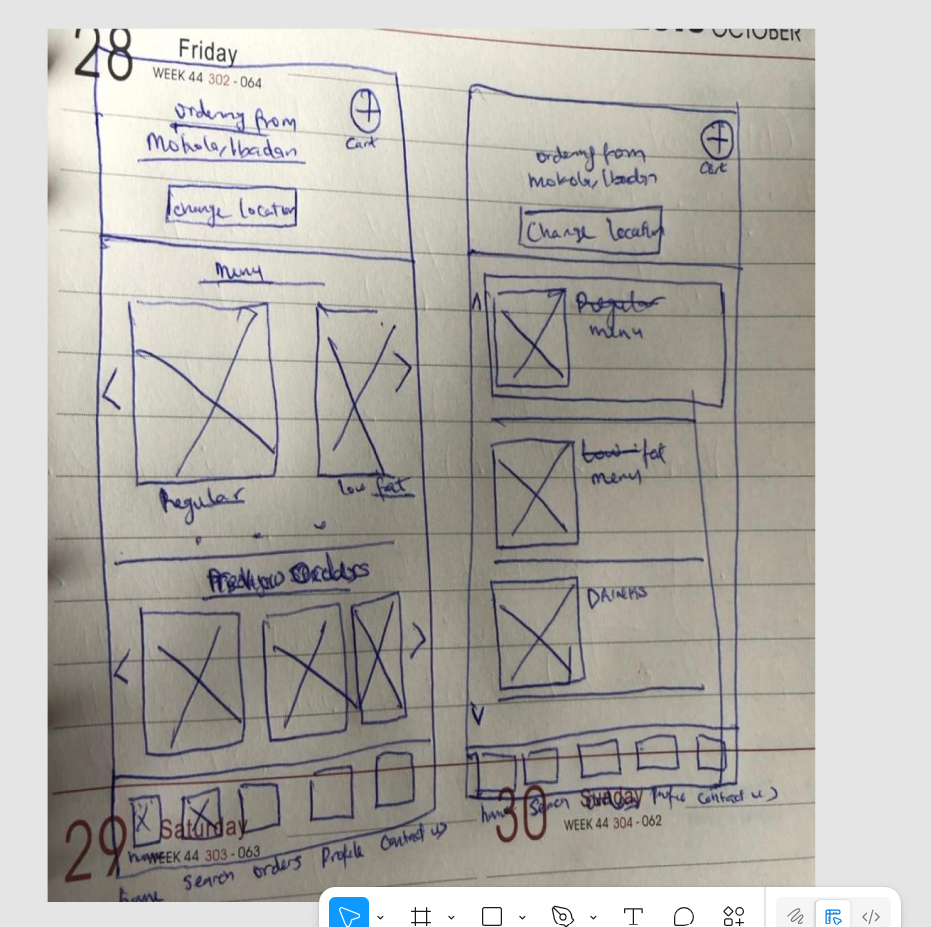 28
Friday
WEEK 44 302 - 064
OCTOBER
ordering from
Mokola, Ibadan
Cart
change location
Menu
Regular
low fat
Orders
home
Search
orders
Profile
Contact us
29
Saturday
WEEK 44 303 - 063
home
ordering from
mokola, Ibadan
Cart
Change location
Regular
menu
Low fat
menu
DRINKS
home
Search
Profile
Contact us
30
Sunday
WEEK 44 304 - 062
T